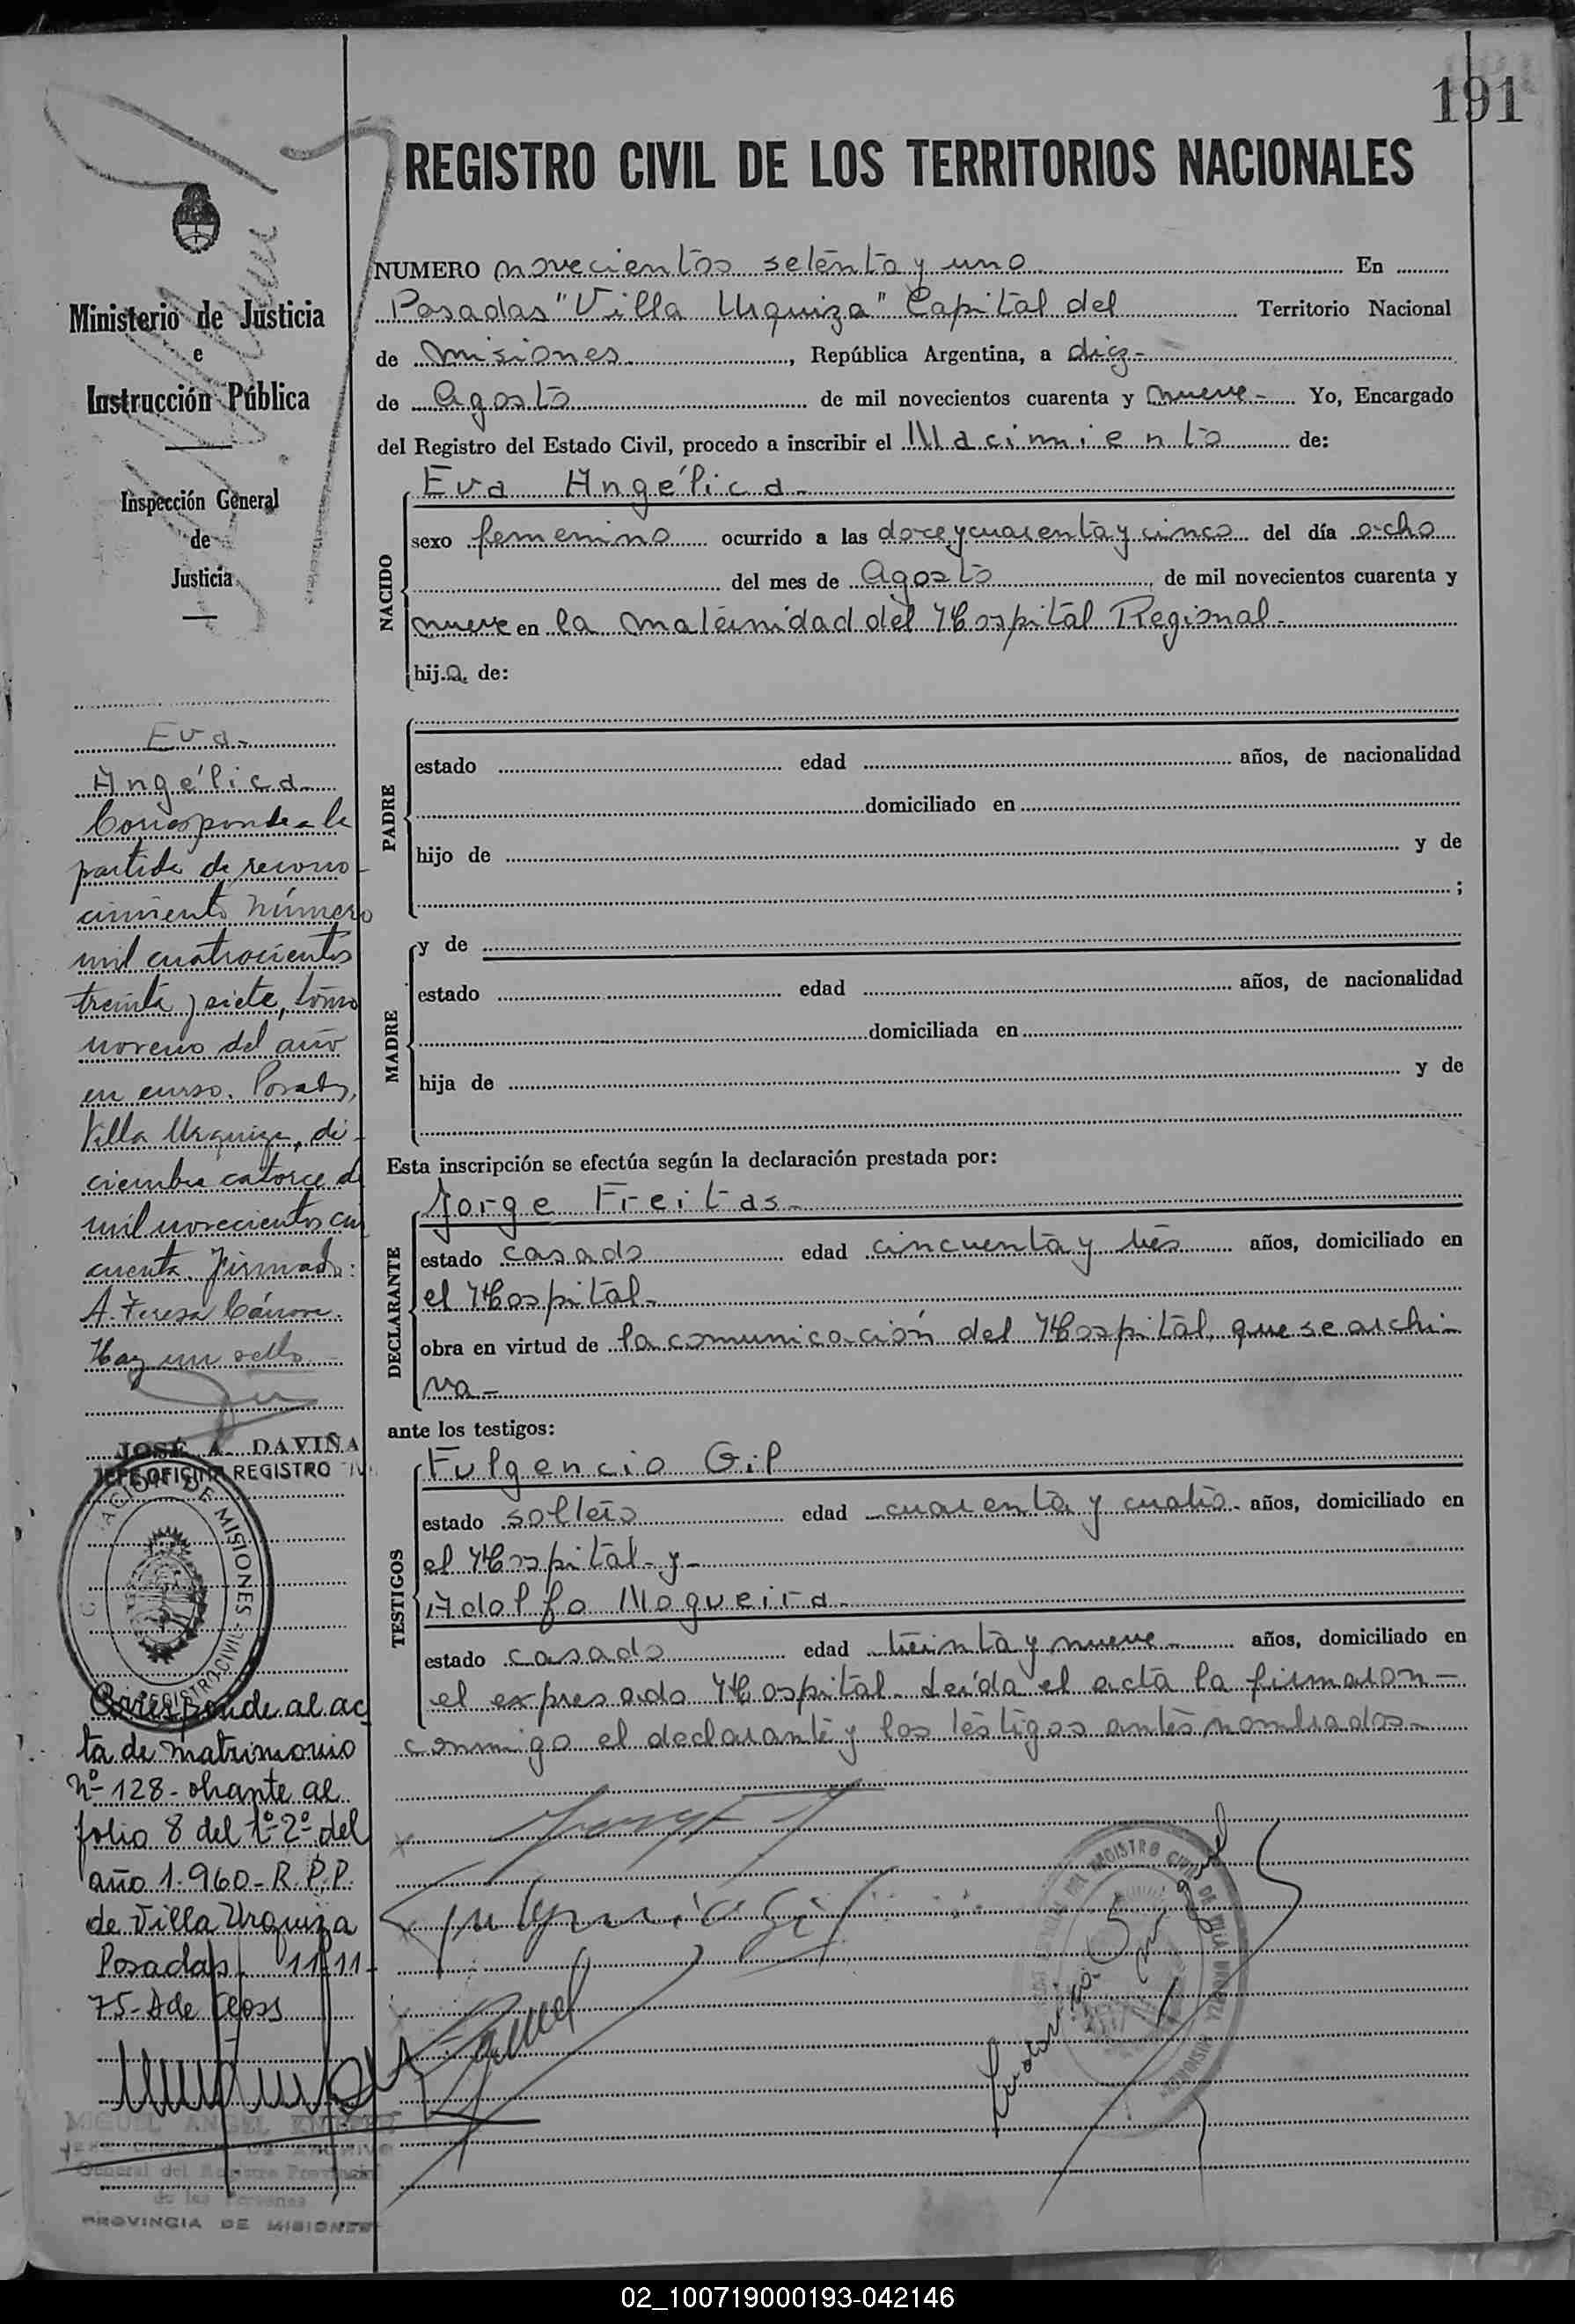 191
REGISTRO CIVIL DE LOS TERRITORIOS NACIONALES
NUMERO novecientos setenta y uno En
Posadas "Villa Urquiza" Capital del Territorio Nacional
de Misiones, República Argentina, a diez-
de Agosto de mil novecientos cuarenta y nueve- Yo, Encargado
del Registro del Estado Civil, procedo a inscribir el Nacimiento de:
NACIDO
Eva Angélica-
sexo femenino ocurrido a las doce y cuarenta y cinco del día ocho
del mes de Agosto, de mil novecientos cuarenta y
nueve en la maternidad del Hospital Regional-
hija de:
PADRE
estado edad años, de nacionalidad
domiciliado en
hijo de y de
;
MADRE
y de
estado edad años, de nacionalidad
domiciliada en
hija de y de
Esta inscripción se efectúa según la declaración prestada por:
DECLARANTE
Jorge Freitas-
estado casado edad cincuenta y tres años, domiciliado en
el Hospital-
obra en virtud de la comunicación del Hospital, que se archi-
va-
ante los testigos:
TESTIGOS
Fulgencio Gil
estado soltero edad cuarenta y cuatro- años, domiciliado en
el Hospital- y-
Adolfo Nogueira-
estado casado edad treinta y nueve- años, domiciliado en
el expresado Hospital- Leída el acta la firmaron-
conmigo el declarante y los testigos antes nombrados-
REGISTRO CIVIL DE VILLA URQUIZA MISIONES
Ministerio de Justicia
e
Instrucción Pública
Inspección General
de
Justicia
Eva-
Angélica-
Corresponde a la
partida de recono-
cimiento número
mil cuatrocientos
treinta y siete, tomo
noveno del año
en curso. Posadas,
Villa Urquiza, di-
ciembre catorce de
mil novecientos cin
cuenta. Firmado:
A. Teresa
Hay un sello.-
JOSÉ A. DAVIÑA
JEFE OFICINA REGISTRO
DE MISIONES
REGISTRO CIVIL
Corresponde al ac
ta de matrimonio
Nº 128- obrante al
folio 8 del tº 2º del
año 1.960- R.P.P.
de Villa Urquiza
Posadas 11-11-
75-
MIGUEL ANGEL
JEFE DE ARCHIVO
General del Registro Provincial
de las Personas
PROVINCIA DE MISIONES
02_100719000193-042146